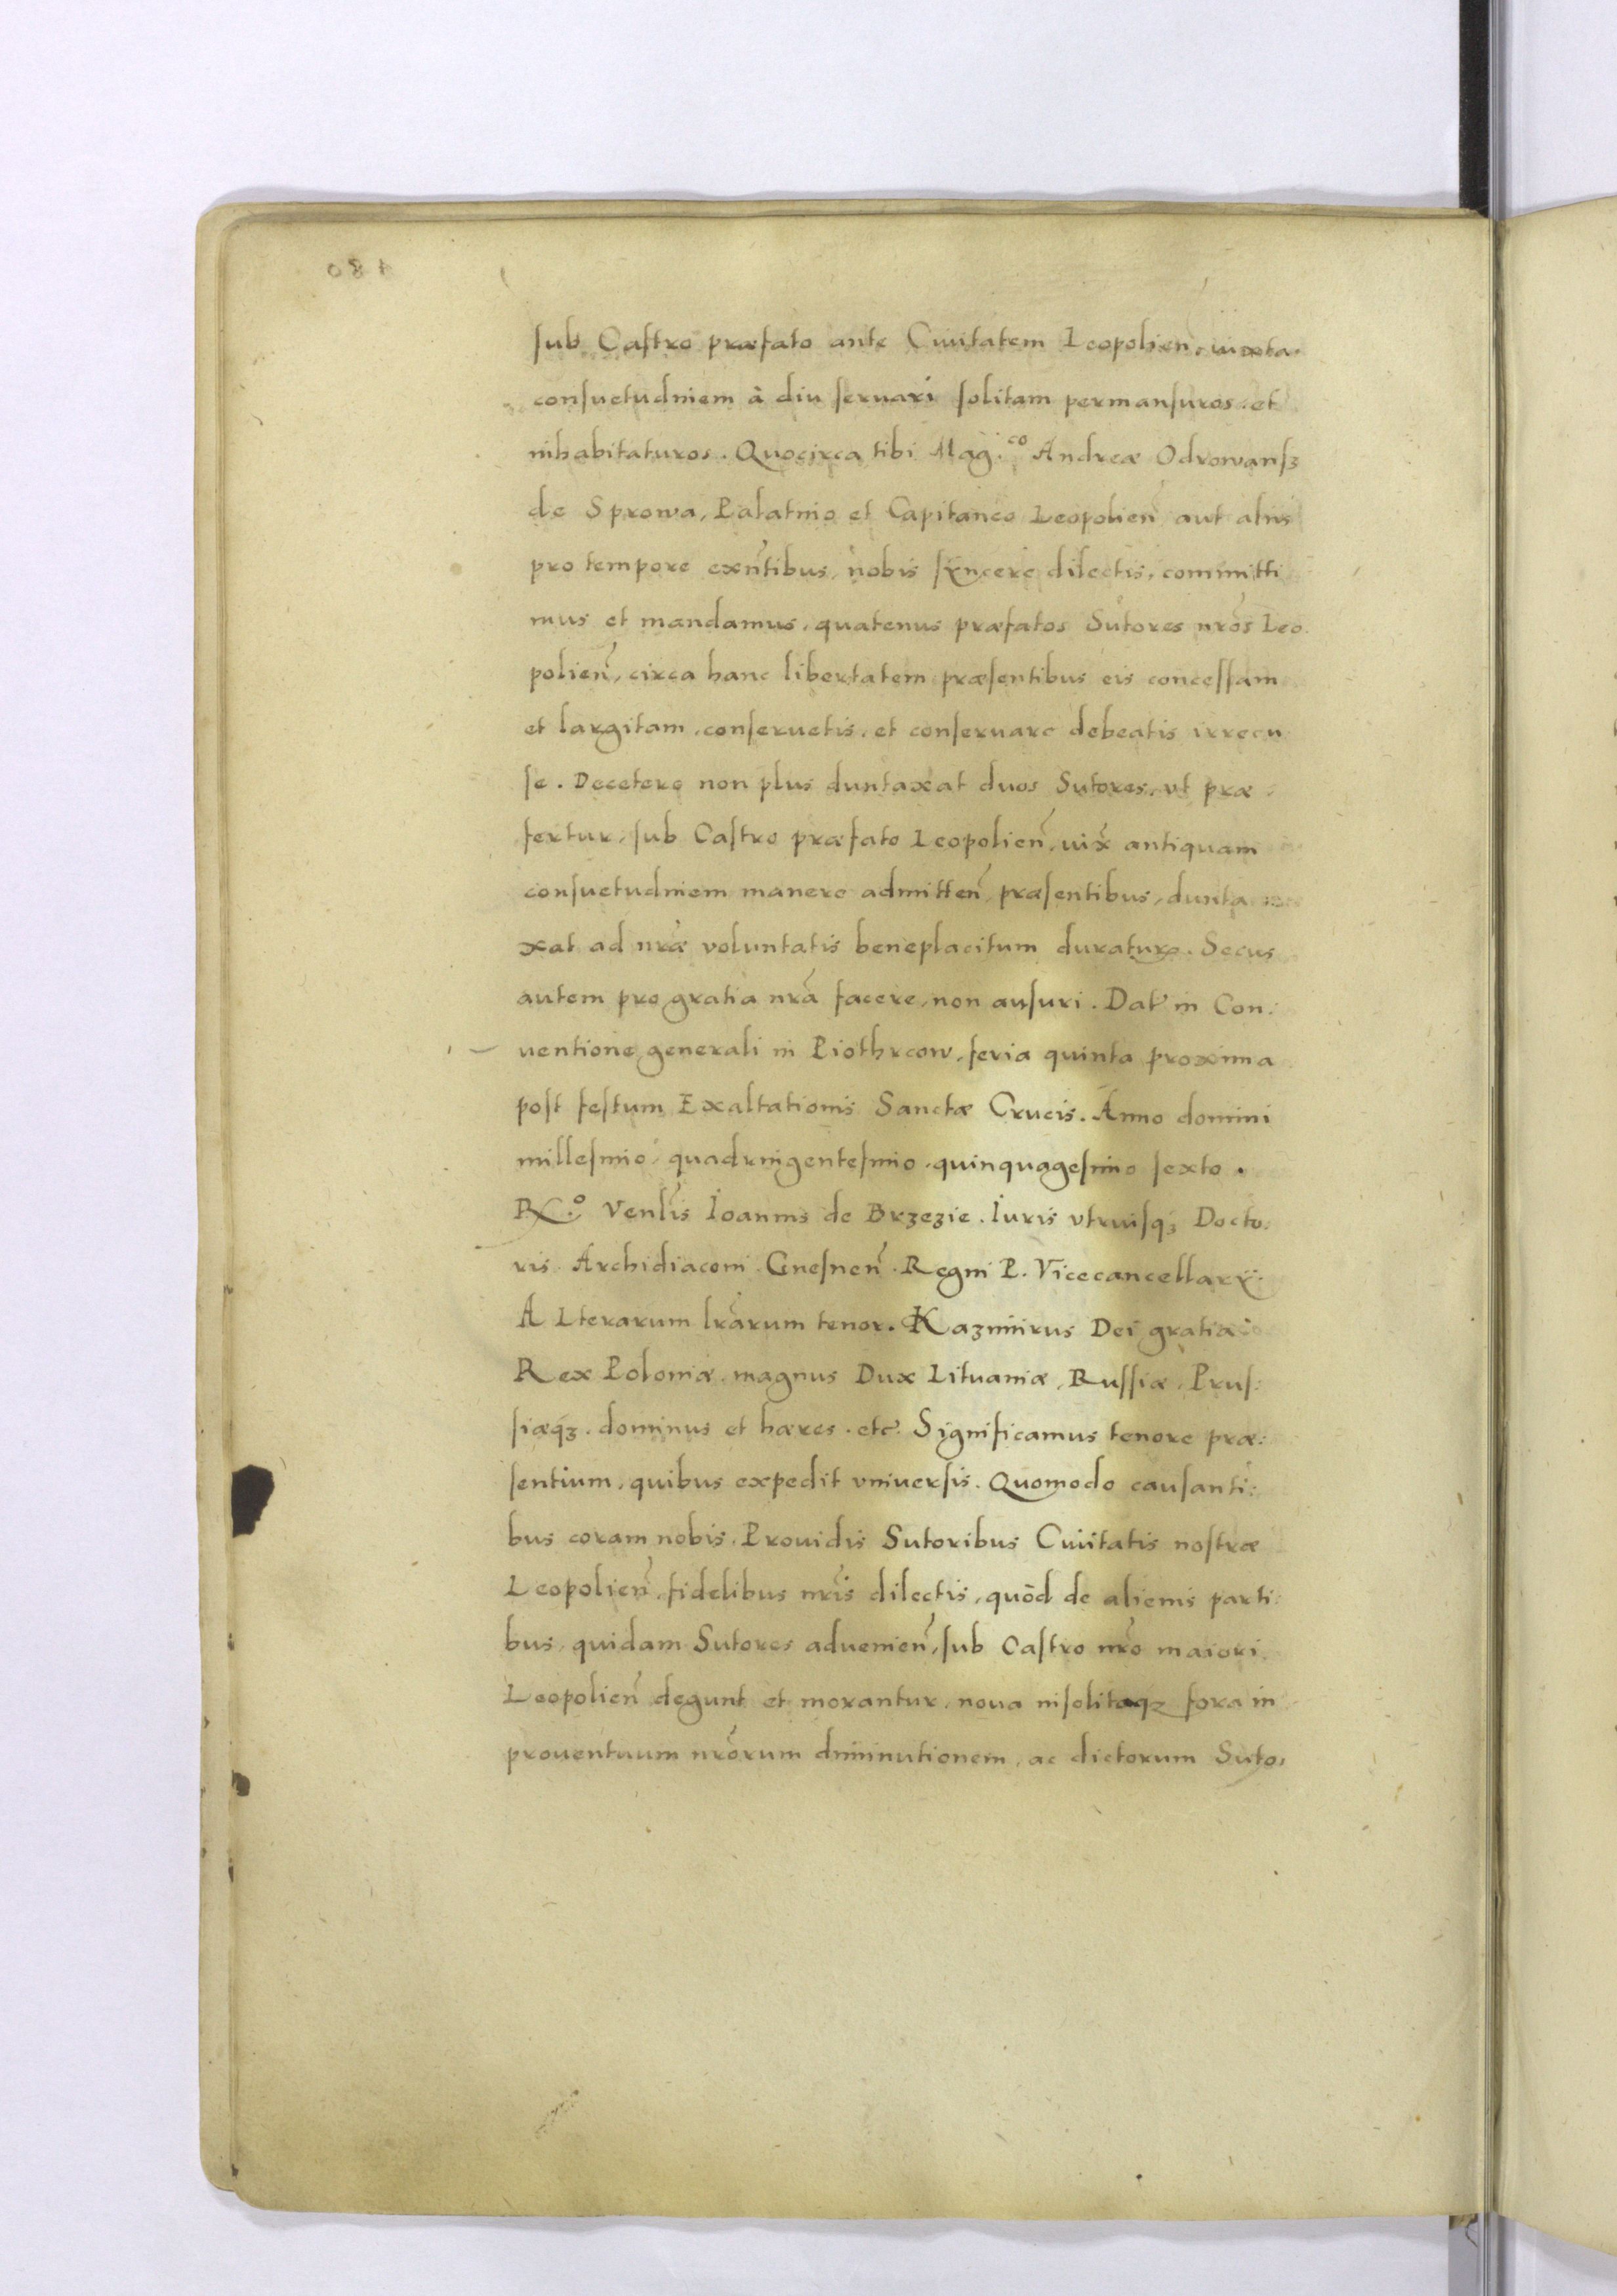 180
sub Castro præfato ante Ciuitatem Leopolien̄, iuxta
consuetudinem à diu seruari solitam permansuros, et
inhabitaturos. Quocirca tibi Mag.co Andreæ Odrowansz
de Sprowa, Palatino et Capitaneo Leopolien̄ aut alijs
pro tempore exn̄tibus, nobis sÿncere dilectis, committi
mus et mandamus, quatenus præfatos Sutores nr̄os Leo
polien̄, circa hanc libertatem præsentibus eis concessam
et largitam, conseruetis, et conseruare debeatis irrecu
se. Decetero non plus duntaxat duos Sutores, vt præ
fertur, sub Castro præfato Leopolien̄, iux̄ antiquam
consuetudinem manere admitten̄ præsentibus, dunta
xat ad nr̄æ voluntatis beneplacitum duraturæ. Secus
autem pro gratia nr̄a facere, non ausuri. Dat̄ in Con:
uentione generali in Piothrcow, feria quinta proxima
post festum Exaltationis Sanctæ Crucis. Anno domini
millesimo, quadringentesimo, quinquagesimo sexto.
R.o Venl̄is Ioannis de Brzezie. Iuris vtriusqꝫ Docto:
ris Archidiaconi Gnesnen̄. Regni P. Vicecancellarÿ.
ALterarum lr̄arum tenor. Kazimirus Dei gratia
Rex Poloniæ, magnus Dux Lituaniæ, Russiæ, Prus:
siæqꝫ, dominus et hæres, etc̄. Significamus tenore præ:
sentium, quibus expedit vniuersis. Quomodo causanti:
bus coram nobis, Prouidis Sutoribus Ciuitatis nostræ
Leopolien̄, fidelibus nr̄is dilectis, quòd de alienis parti:
bus, quidam Sutores aduenien̄, sub Castro nr̄o maiori
Leopolien̄ degunt et morantur, noua insolitaqꝫ fora in
prouentuum nr̄orum diminutionem, ac dictorum Suto,